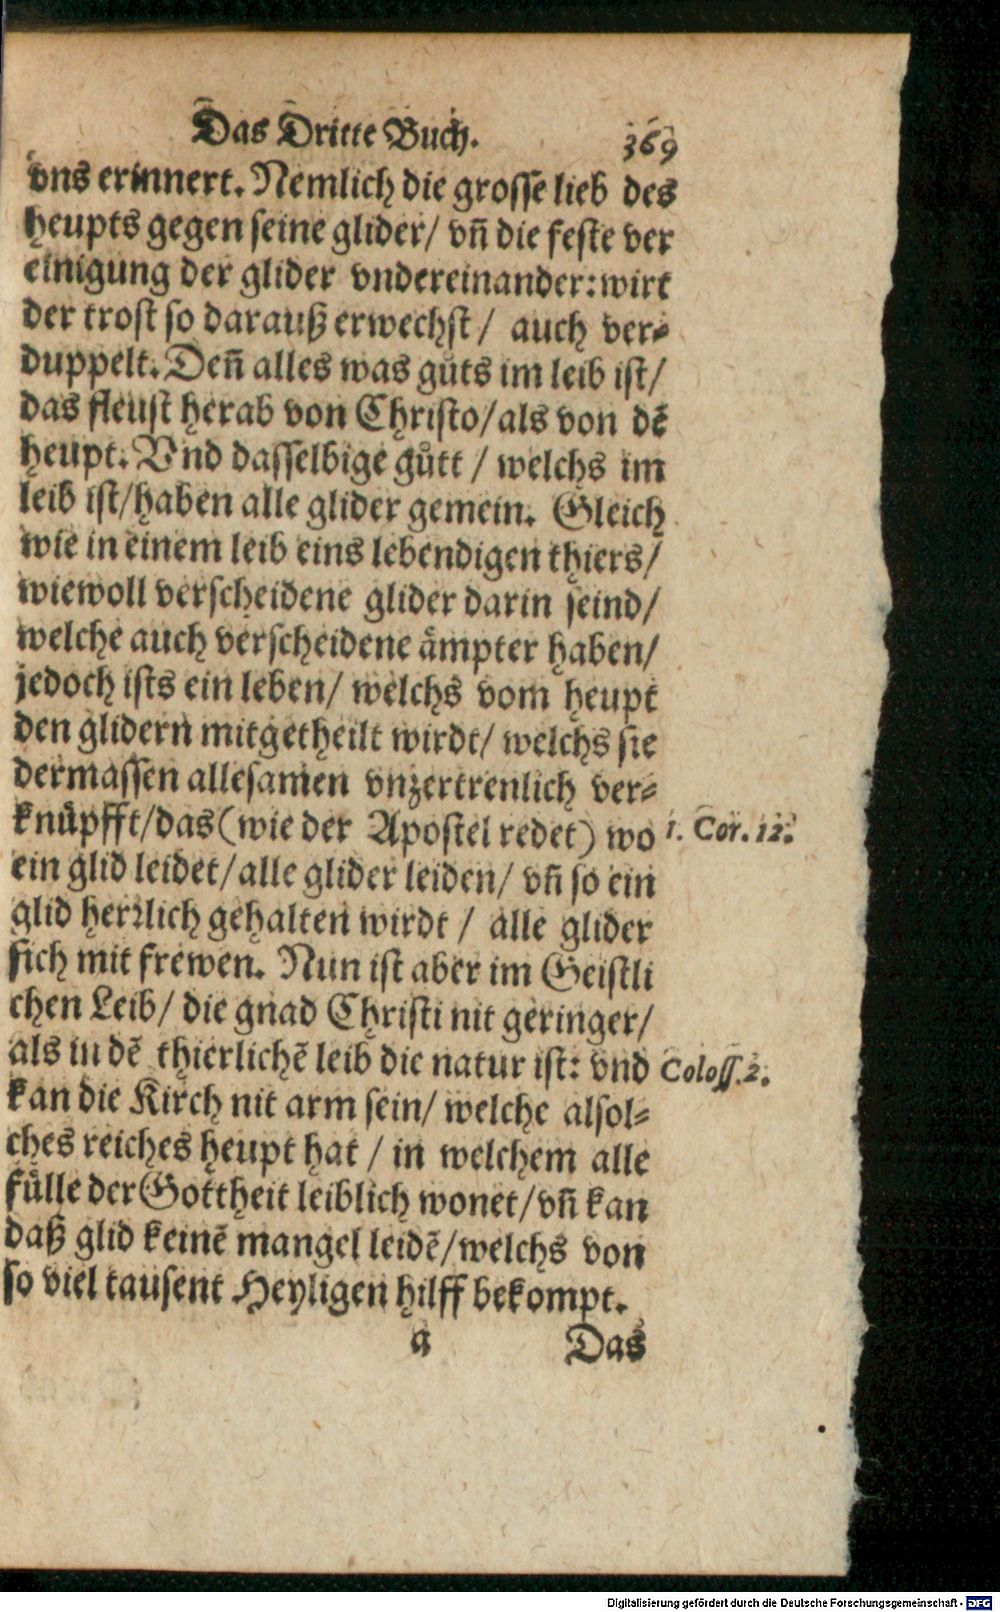 Das Dritte Buch. 369
vns erinnert. Nemlich die grosse lieb des
heupts gegen seine glider/ vn̄ die feste ver
einigung der glider vndereinander: wirt
der trost so darauß erwechst/ auch ver⸗
duppelt. Den̄ alles was gůts im leib ist/
das fleust herab von Christo/ als von dē
heupt. Vnd dasselbige gůtt/ welchs im
leib ist/ haben alle glider gemein. Gleich
wie in einem leib eins lebendigen thiers/
wiewoll verscheidene glider darin seind/
welche auch verscheidene åmpter haben/
jedoch ists ein leben/ welchs vom heupt
den glidern mitgetheilt wirdt/ welchs sie
dermassen allesamen vnzertrenlich ver⸗
knüpfft/ das (wie der Apostel redet) wo 1. Cor. 12.
ein glid leidet/ alle glider leiden/ vn̄ so ein
glid herꝛlich gehalten wirdt/ alle glider
sich mit frewen. Nun ist aber im Geistli
chen Leib/ die gnad Christi nit geringer/
als in dē thierlichē leib die natur ist: vnd Coloss. 2.
kan die Kirch nit arm sein/ welche alsol⸗
ches reiches heupt hat/ in welchem alle
fülle der Gottheit leiblich wonet/ vn̄ kan
daß glid keinē mangel leidē/ welchs von
so viel tausent Heyligen hilff bekompt.
a Das
Digitalisierung gefördert durch die Deutsche Forschungsgemeinschaft - DFG